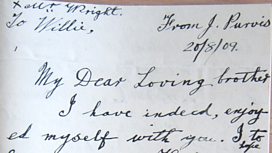 & Mr. Wright.
To Willie, From J. Purvis
20/8/09.
My Dear Loving brother
I have indeed, enjoy
ed myself with you. I to
hope